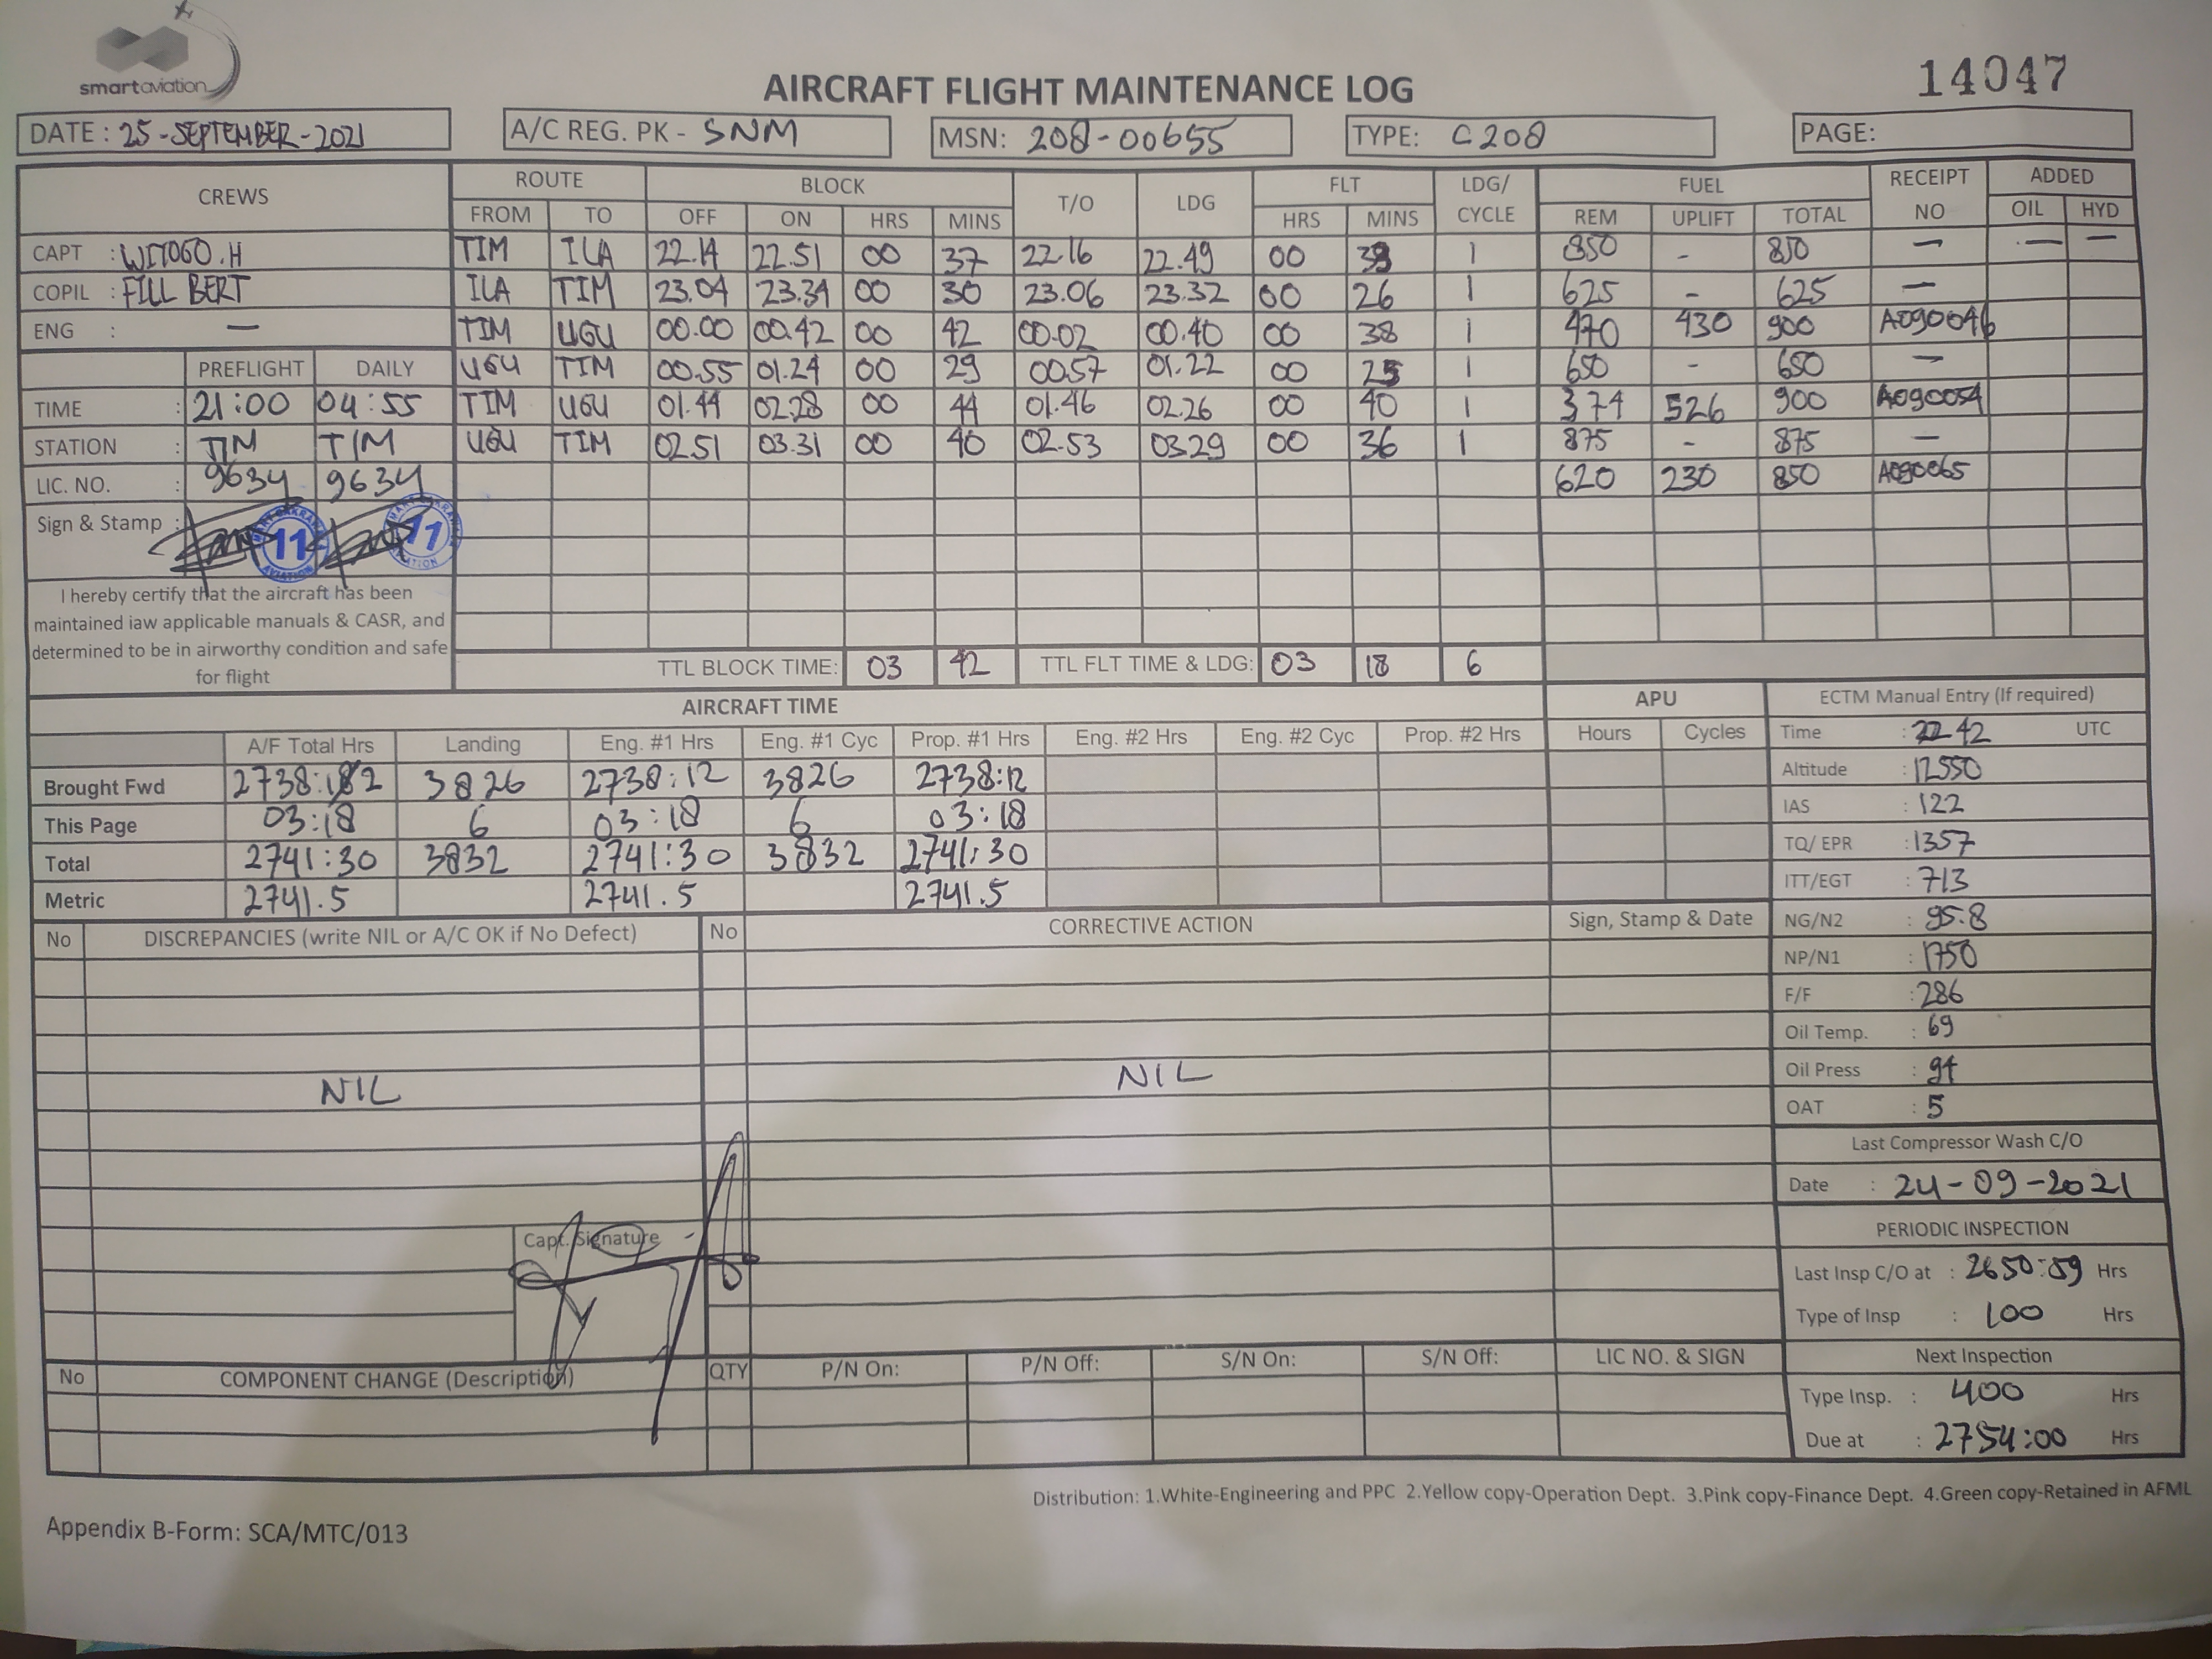 smartaviation
AIRCRAFT FLIGHT MAINTENANCE LOG
14047
DATE : 25-SEPTEMBER-2021 A/C REG. PK - SNM MSN: 208-00655 TYPE: C208 PAGE:
CREWS ROUTE BLOCK T/O LDG FLT LDG/ CYCLE FUEL RECEIPT NO ADDED
FROM TO OFF ON HRS MINS HRS MINS REM UPLIFT TOTAL OIL HYD
CAPT : WITOGO.H TIM ILA 22.14 22.51 00 37 22.16 22.49 00 33 1 850 - 850 — — —
COPIL : FILL BERT ILA TIM 23.04 23.34 00 30 23.06 23.32 00 26 1 625 - 625 —
ENG : — TIM UGU 00.00 00.42 00 42 00.02 00.40 00 38 1 470 430 900 A090046
PREFLIGHT DAILY UGU TIM 00.55 01.24 00 29 00.57 01.22 00 25 1 650 - 650 —
TIME : 21:00 04:55 TIM UGU 01.44 02.28 00 44 01.46 02.26 00 40 1 374 526 900 A090054
STATION : TIM TIM UGU TIM 02.51 03.31 00 40 02.53 03.29 00 36 1 875 - 875 —
LIC. NO. : 9634 9634 620 230 850 A090065
Sign & Stamp : 11 11
AVIATION
I hereby certify that the aircraft has been
maintained iaw applicable manuals & CASR, and
determined to be in airworthy condition and safe
for flight
TTL BLOCK TIME: 03 42 TTL FLT TIME & LDG: 03 18 6
AIRCRAFT TIME APU ECTM Manual Entry (If required)
A/F Total Hrs Landing Eng. #1 Hrs Eng. #1 Cyc Prop. #1 Hrs Eng. #2 Hrs Eng. #2 Cyc Prop. #2 Hrs Hours Cycles
Brought Fwd 2738:12 3826 2738:12 3826 2738:12
This Page 03:18 6 03:18 6 03:18
Total 2741:30 3832 2741:30 3832 2741:30
Metric 2741.5 2741.5 2741.5
Time : 22 42 UTC
Altitude : 12550
IAS : 122
TQ/ EPR : 1357
ITT/EGT : 713
NG/N2 : 95.8
NP/N1 : 1750
F/F : 286
Oil Temp. : 69
Oil Press : 94
OAT : 5
No DISCREPANCIES (write NIL or A/C OK if No Defect) No CORRECTIVE ACTION Sign, Stamp & Date
NIL NIL
Capt. Signature
Last Compressor Wash C/O
Date : 24-09-2021
PERIODIC INSPECTION
Last Insp C/O at : 2650:59 Hrs
Type of Insp : 100 Hrs
Next Inspection
Type Insp. : 400 Hrs
Due at : 2754:00 Hrs
No COMPONENT CHANGE (Description) QTY P/N On: P/N Off: S/N On: S/N Off: LIC NO. & SIGN
Distribution: 1.White-Engineering and PPC 2.Yellow copy-Operation Dept. 3.Pink copy-Finance Dept. 4.Green copy-Retained in AFML
Appendix B-Form: SCA/MTC/013